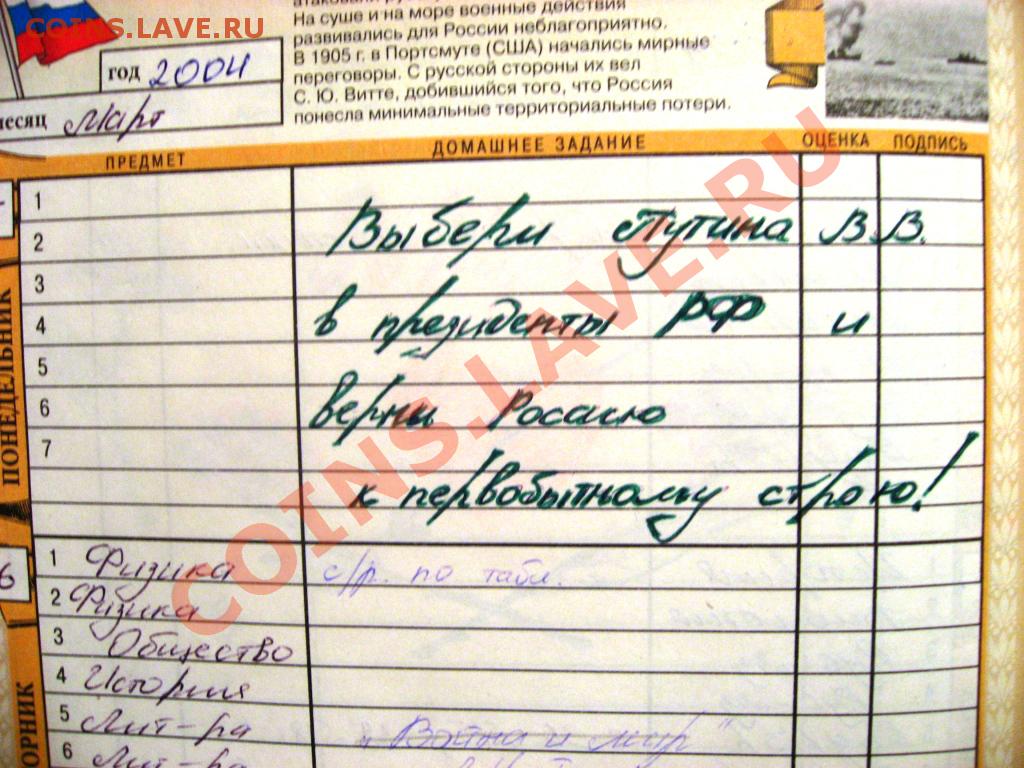 COINS.LAVE.RU
На суше и на море военные действия
развивались для России неблагоприятно.
В 1905 г. в Портсмуте (США) начались мирные
переговоры. С русской стороны их вел
С. Ю. Витте, добившийся того, что Россия
понесла минимальные территориальные потери.
год 2004
месяц Март
ПРЕДМЕТ ДОМАШНЕЕ ЗАДАНИЕ ОЦЕНКА ПОДПИСЬ
ПОНЕДЕЛЬНИК
1
2 Выбери Путина В.В.
3
4 в президенты РФ и
5
6 верни Россию
7
к первобытному строю!
COINS.LAVE.RU
6
1 Физика с/р. по табл.
2 Физика
3 Общество
4 История
5 Лит-ра "Война и мир"
6 Лит-ра